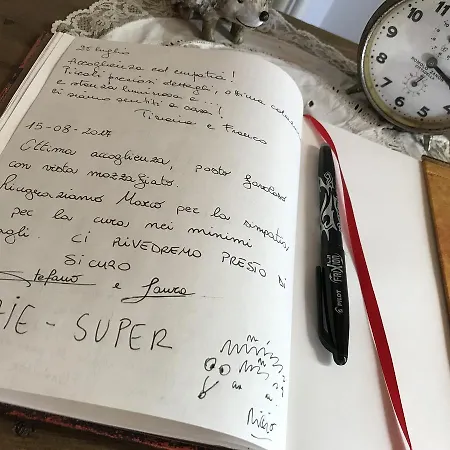 25 luglio
Accoglienza ed empatia!
Piccoli preziosi dettagli, ottima colazione
e stanza luminosa e...!
ci siamo sentiti a casa!
Tiziana e Franco
15-08-2017
Ottima accoglienza, posto favoloso
con vista mozzafiato.
Ringraziamo Marco per la simpatia,
per la cura nei minimi
agli. CI RIVEDREMO PRESTO DI
SICURO
Stefano e Laura
ZIE - SUPER
PILOT
FRIXION
10
11
12
1
2
3
4
5
6
7
8
9